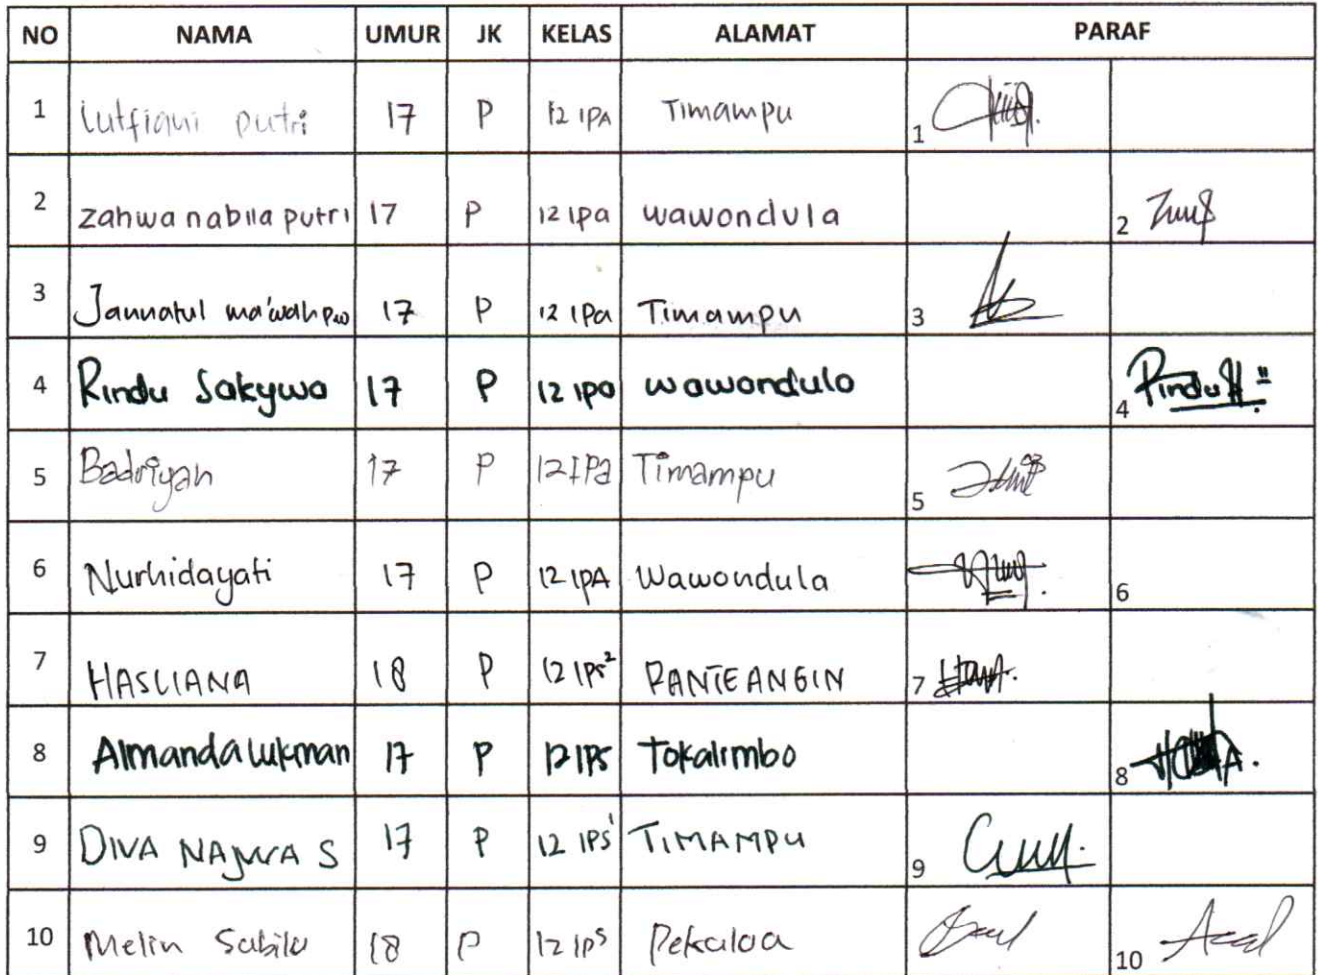 NO NAMA UMUR JK KELAS ALAMAT PARAF
1 Lutfiani putri 17 P 12 IPA Timampu 1
2 zahwa nabila putri 17 P 12 Ipa wawondula 2
3 Jannatul ma'wah 17 P 12 IPa Timampu 3
4 Rindu Sakywa 17 P 12 ipa wawondula 4 Rindu
5 Badriyah 17 P 12 IPa Timampu 5
6 Nurhidayati 17 P 12 IPA Wawondula 6
7 HASLIANA 18 P 12 IPS² PANTE ANGIN 7
8 Almanda Lukman 17 P 12 IPS Tokalimbo 8
9 DIVA NAJWA S 17 P 12 IPS¹ TIMAMPU 9
10 Melin Sabila 18 P 12 IPS Pekaloa 10